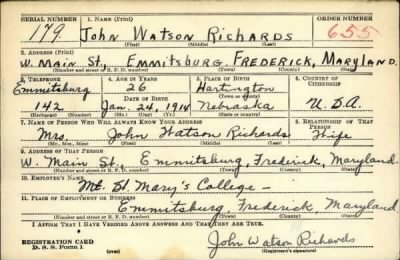 SERIAL NUMBER 1. NAME (Print) ORDER NUMBER
179 John Watson Richards 655
(First) (Middle) (Last)
2. ADDRESS (Print)
W. Main St., Emmitsburg, Frederick, Maryland.
(Number and street or R. F. D. number) (Town) (County) (State)
3. TELEPHONE 4. AGE IN YEARS 5. PLACE OF BIRTH 6. COUNTRY OF CITIZENSHIP
Emmitsburg 26 Hartington
DATE OF BIRTH (Town or county)
142 Jan. 24, 1914 Nebraska U.S.A.
(Exchange) (Number) (Mo.) (Day) (Yr.) (State or country)
7. NAME OF PERSON WHO WILL ALWAYS KNOW YOUR ADDRESS 8. RELATIONSHIP OF THAT PERSON
Mrs. John Watson Richards Wife
(Mr., Mrs., Miss) (First) (Middle) (Last)
9. ADDRESS OF THAT PERSON
W. Main St., Emmitsburg, Frederick, Maryland.
(Number and street or R. F. D. number) (Town) (County) (State)
10. EMPLOYER'S NAME
Mt. St. Mary's College -
11. PLACE OF EMPLOYMENT OR BUSINESS
Emmitsburg, Frederick, Maryland
(Number and street or R. F. D. number) (Town) (County) (State)
I AFFIRM THAT I HAVE VERIFIED ABOVE ANSWERS AND THAT THEY ARE TRUE.
REGISTRATION CARD
D. S. S. Form 1 (over)
John Watson Richards
(Registrant's signature)